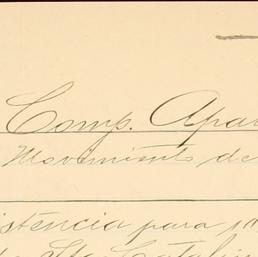 Comp. Apar
Movimiento de
istencia para
de Sta Catalin